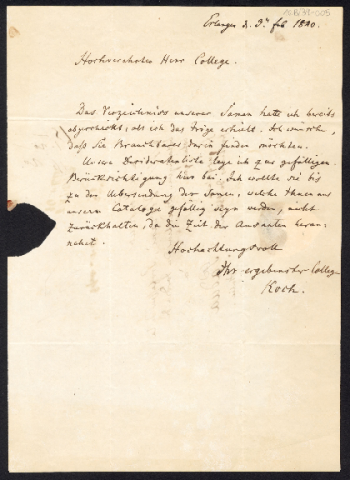 Erlangen d. 3n feb 1840.
Hochverehrter Herr College.
Das Verzeichniss unserer Samen hatte ich bereits
abgeschickt, als ich das Ihrige erhielt. Ich wünsche,
daß Sie Brauchbares darin finden möchten.
Unsere Desideratenliste lege ich zur gefälligen
Berücksichtigung hier bei. Ich wollte sie bis
zu der Uebersendung der Samen, welche Ihnen aus
unserm Cataloge gefällig seyn werden, nicht
zurückhalten, da die Zeit der Aussaaten heran-
nahet.
Hochachtungsvoll
Ihr ergebenster College
Koch.